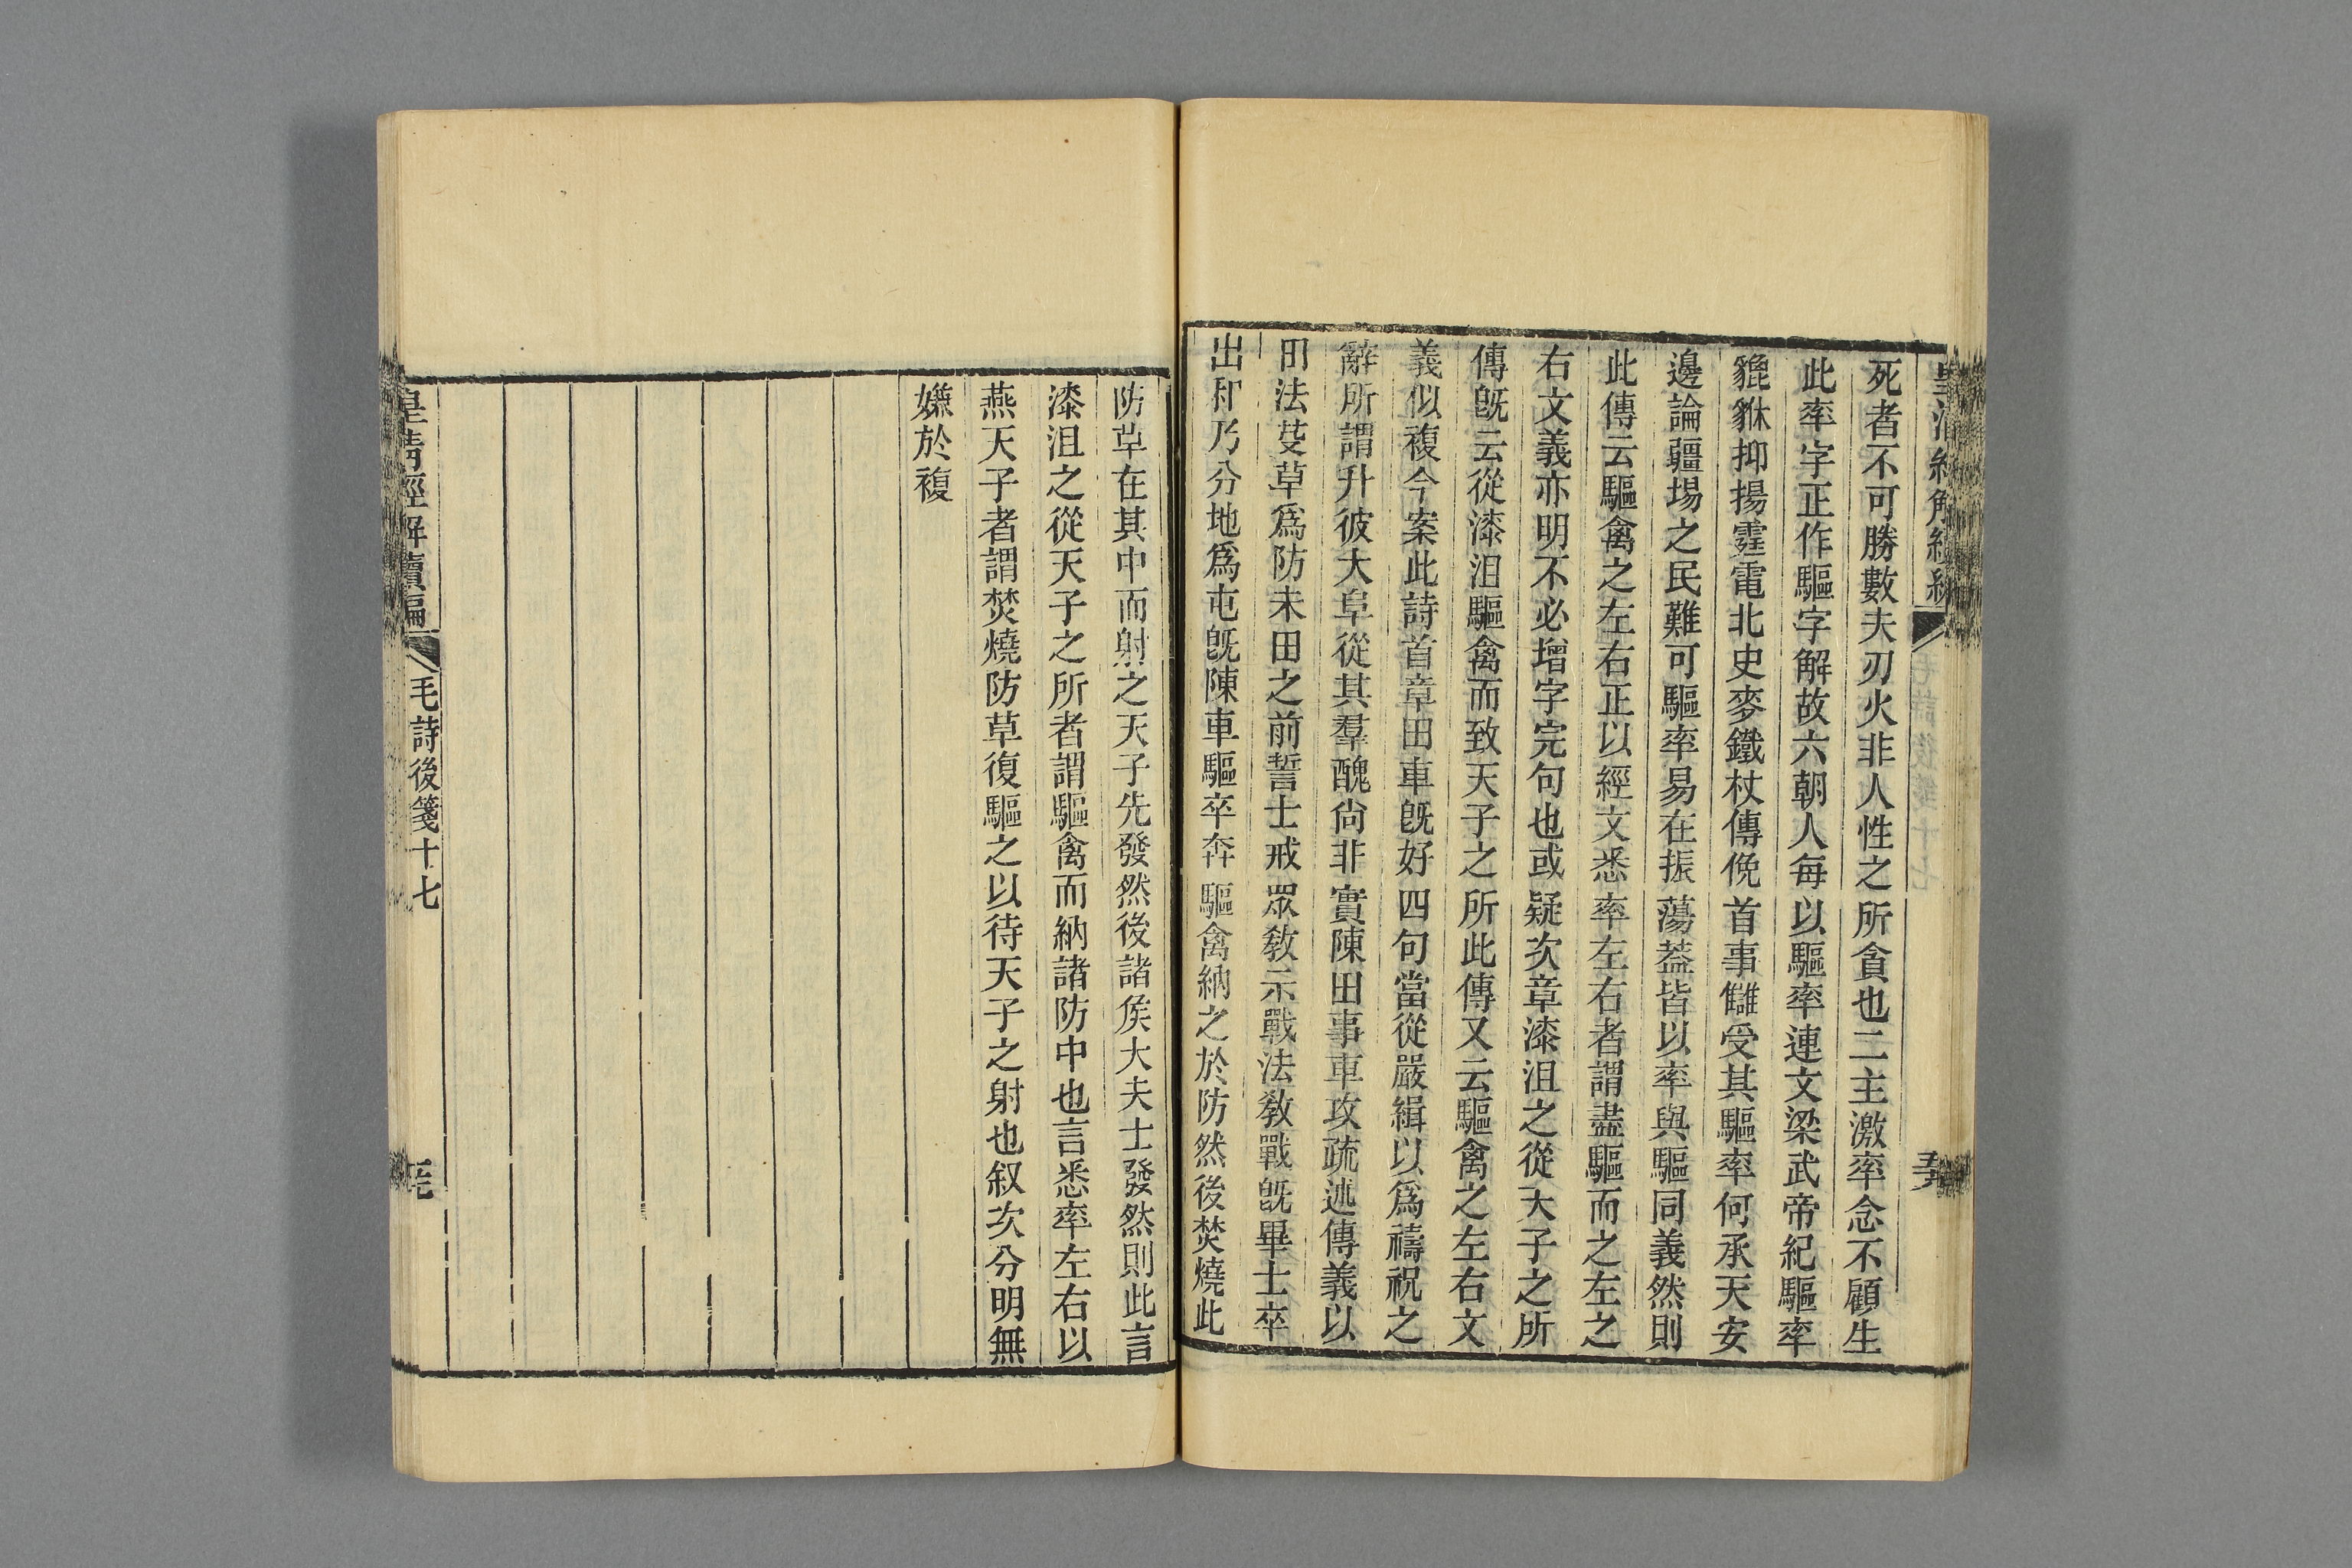 死者不可勝數夫刃火非人性之所貪也二主激率念不顧生
此率字正作驅字解故六朝人每以驅率連文梁武帝紀驅率
貔貅抑揚霆電北史麥鐵杖傳俛首事讎受其驅率何承天安
邊論疆埸之民難可驅率易在振蕩葢皆以率與驅同義然則
此傳云驅禽之左右正以經文悉率左右者謂盡驅而之左之
右文義亦明不必增字完句也或疑次章漆沮之從天子之所
傳旣云從漆沮驅禽而致天子之所此傳又云驅禽之左右文
義似複今案此詩首章田車旣好四句當從嚴緝以爲禱祝之
辭所謂升彼大阜從其羣醜尙非實陳田事車攻疏述傳義以
田法芟草爲防未田之前誓士戒眾敎示戰法敎戰旣畢士卒
出和乃分地爲屯旣陳車驅卒奔驅禽納之於防然後焚燒此
防草在其中而射之天子先發然後諸矦大夫士發然則此言
漆沮之從天子之所者謂驅禽而納諸防中也言悉率左右以
燕天子者謂焚燒防草復驅之以待天子之射也叙次分明無
嫌於複
皇清經解續編
毛詩後箋十七